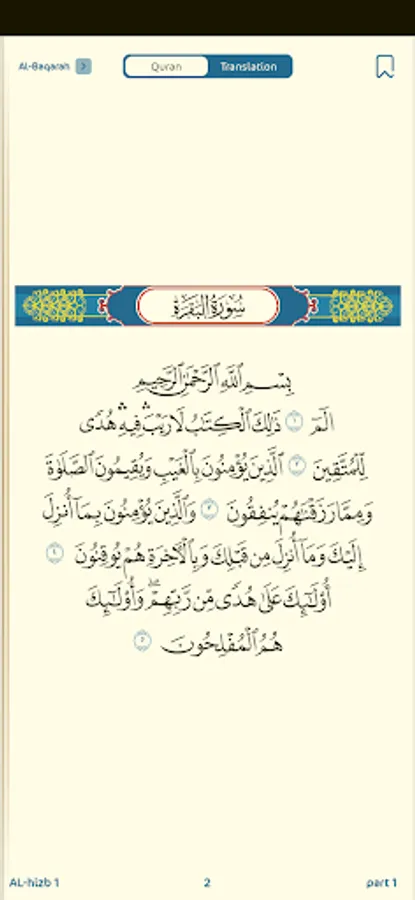 AL-Baqarah
Quran
Translation
سُورَةُ البَقَرَةِ
بِسْمِ ٱللَّهِ ٱلرَّحْمَٰنِ ٱلرَّحِيمِ
الٓمٓ ١ ذَٰلِكَ ٱلْكِتَٰبُ لَا رَيْبَۛ فِيهِۛ هُدًى
لِّلْمُتَّقِينَ ٢ ٱلَّذِينَ يُؤْمِنُونَ بِٱلْغَيْبِ وَيُقِيمُونَ ٱلصَّلَوٰةَ
وَمِمَّا رَزَقْنَٰهُمْ يُنفِقُونَ ٣ وَٱلَّذِينَ يُؤْمِنُونَ بِمَآ أُنزِلَ
إِلَيْكَ وَمَآ أُنزِلَ مِن قَبْلِكَ وَبِٱلْءَاخِرَةِ هُمْ يُوقِنُونَ ٤
أُو۟لَٰٓئِكَ عَلَىٰ هُدًى مِّن رَّبِّهِمْۖ وَأُو۟لَٰٓئِكَ
هُمُ ٱلْمُفْلِحُونَ ٥
AL-hizb 1
2
part 1